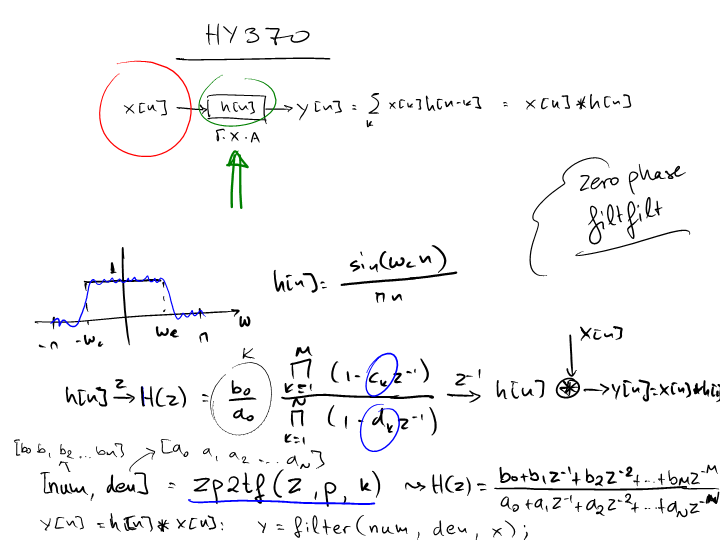 HY370
x[n] → h[n] → y[n] = Σ_k x[k]h[n-k] = x[n]*h[n]
Γ.Χ.Α
zero phase
filtfilt
1
-π -ωc ωc π ω
h[n] = sin(ωc n) / πn
x[n]
K
h[n] →^z H(z) = b₀/a₀ ∏_{k=1}^{M} (1-c_k z⁻¹) / ∏_{k=1}^{N} (1-d_k z⁻¹) →^{z⁻¹} h[n] ⊛ → y[n]=x[n]*h[n]
[b₀ b₁ b₂ ... bM] [a₀ a₁ a₂ ... aN]
[num, den] = zp2tf(z, p, k) ⇝ H(z) = b₀+b₁z⁻¹+b₂z⁻²+...+bMz^-M / a₀+a₁z⁻¹+a₂z⁻²+...+aNz^-N
y[n] = h[n]*x[n]: y = filter(num, den, x);